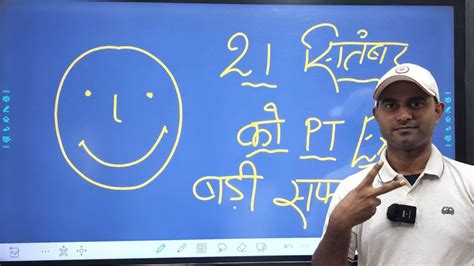 21 सितंबर
को PT
बड़ी